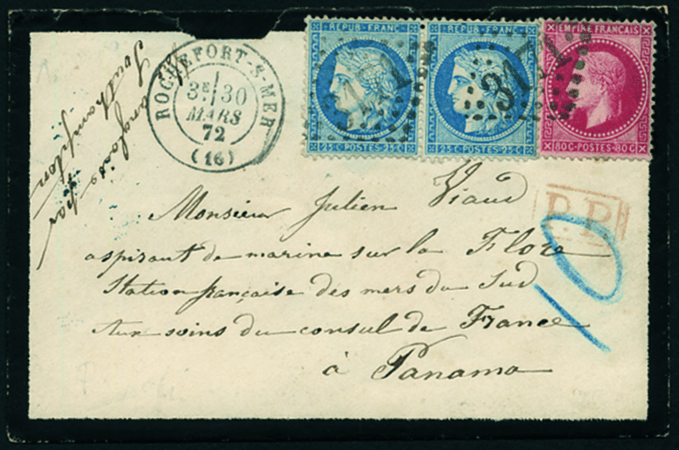 ROCHEFORT-S-MER
3E 30
MARS
72
(16)
REPUB. FRANC.
25C·POSTES·25C
REPUB. FRANC.
25C·POSTES·25C
EMPIRE FRANÇAIS
80C·POSTES·80C
3171
P.P.
10
anglais par
Southampton
Monsieur Julien Viaud
aspirant de marine sur la Flore
Station française des mers du Sud
aux soins du consul de France
à Panama